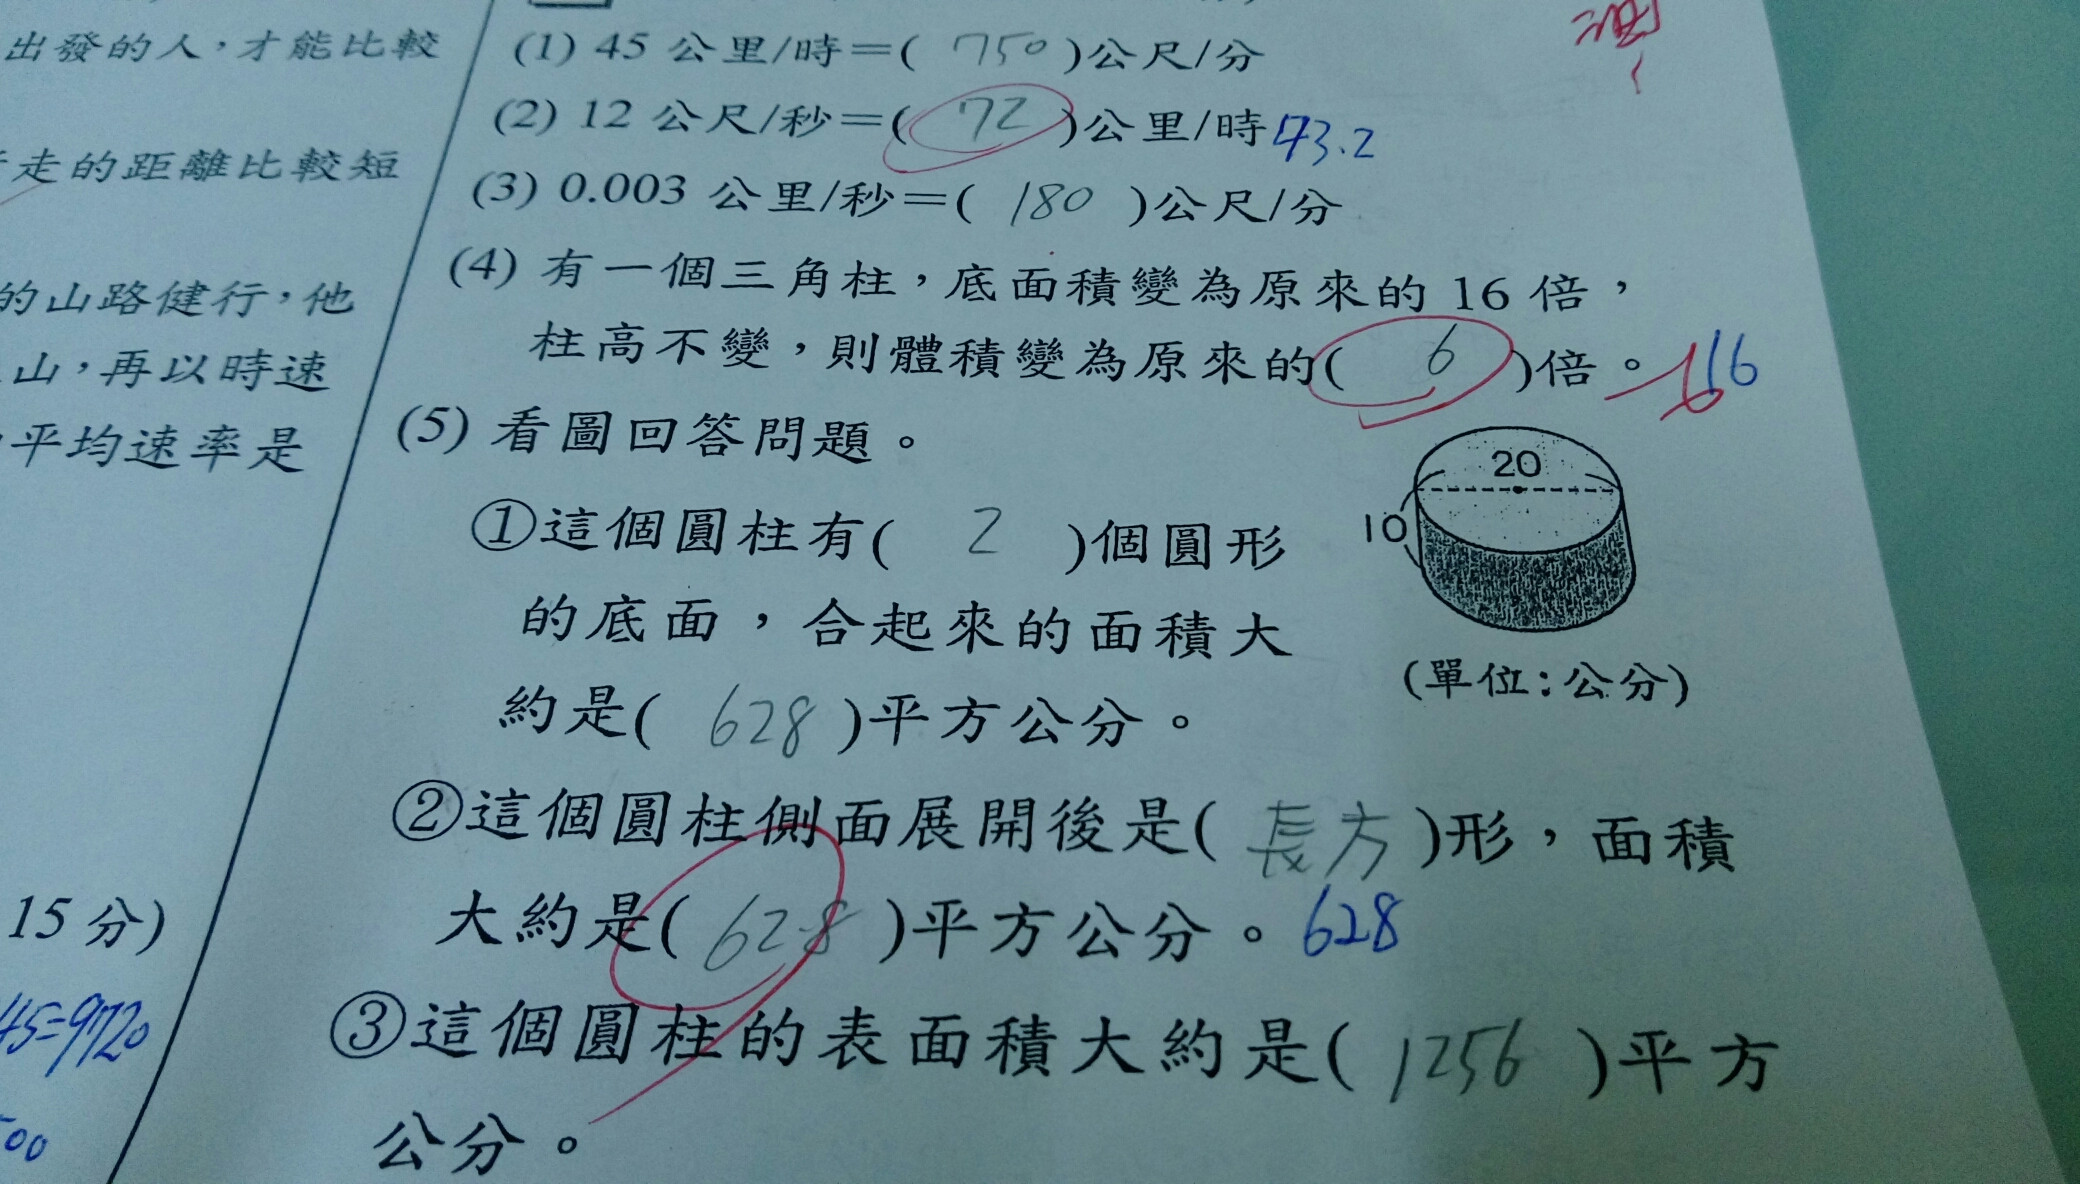 出發的人，才能比較
走的距離比較短
的山路健行，他
山，再以時速
平均速率是
15 分)
45=9720
00
(1) 45 公里/時＝( 750 )公尺/分
(2) 12 公尺/秒＝( 72 )公里/時 43.2
(3) 0.003 公里/秒＝( 180 )公尺/分
(4) 有一個三角柱，底面積變為原來的 16 倍，
柱高不變，則體積變為原來的( 6 )倍。 16
(5) 看圖回答問題。
20
10
(單位:公分)
①這個圓柱有( 2 )個圓形
的底面，合起來的面積大
約是( 628 )平方公分。
②這個圓柱側面展開後是( 長方 )形，面積
大約是( 628 )平方公分。 628
③這個圓柱的表面積大約是( 1256 )平方
公分。